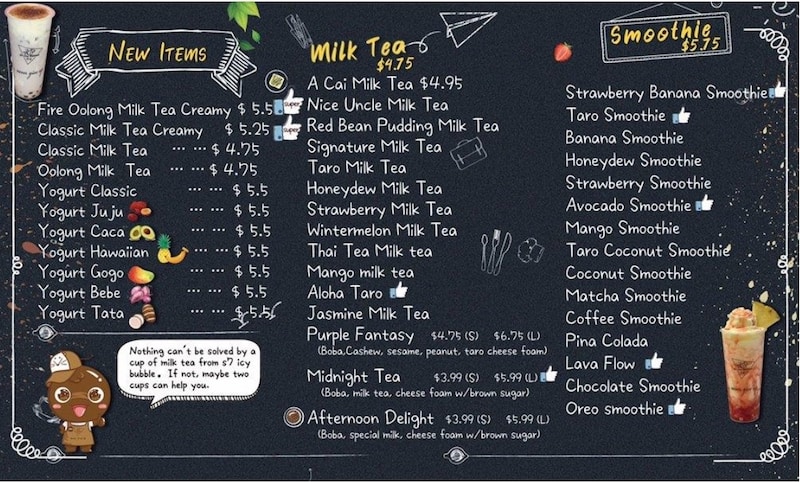 New Items
Fire Oolong Milk Tea Creamy $ 5.5 super
Classic Milk Tea Creamy $ 5.25 super
Classic Milk Tea ... ... $ 4.75
Oolong Milk Tea ... ... $ 4.75
Yogurt Classic ... ... $ 5.5
Yogurt Juju ... ... $ 5.5
Yogurt Caca ... ... $ 5.5
Yogurt Hawaiian ... ... $ 5.5
Yogurt Gogo ... ... $ 5.5
Yogurt Bebe ... ... $ 5.5
Yogurt Tata ... ... $ 5.5
Nothing can't be solved by a
cup of milk tea from s7 icy
bubble. If not, maybe two
cups can help you.
Milk Tea
$4.75
A Cai Milk Tea $4.95
Nice Uncle Milk Tea
Red Bean Pudding Milk Tea
Signature Milk Tea
Taro Milk Tea
Honeydew Milk Tea
Strawberry Milk Tea
Wintermelon Milk Tea
Thai Tea Milk tea
Mango milk tea
Aloha Taro
Jasmine Milk Tea
Purple Fantasy $4.75 (S) $6.75 (L)
(Boba,Cashew, sesame, peanut, taro cheese foam)
Midnight Tea $3.99 (S) $5.99 (L)
(Boba, milk tea, cheese foam w/brown sugar)
Afternoon Delight $3.99 (S) $5.99 (L)
(Boba, special milk, cheese foam w/brown sugar)
Smoothie
$5.75
Strawberry Banana Smoothie
Taro Smoothie
Banana Smoothie
Honeydew Smoothie
Strawberry Smoothie
Avocado Smoothie
Mango Smoothie
Taro Coconut Smoothie
Coconut Smoothie
Matcha Smoothie
Coffee Smoothie
Pina Colada
Lava Flow
Chocolate Smoothie
Oreo smoothie